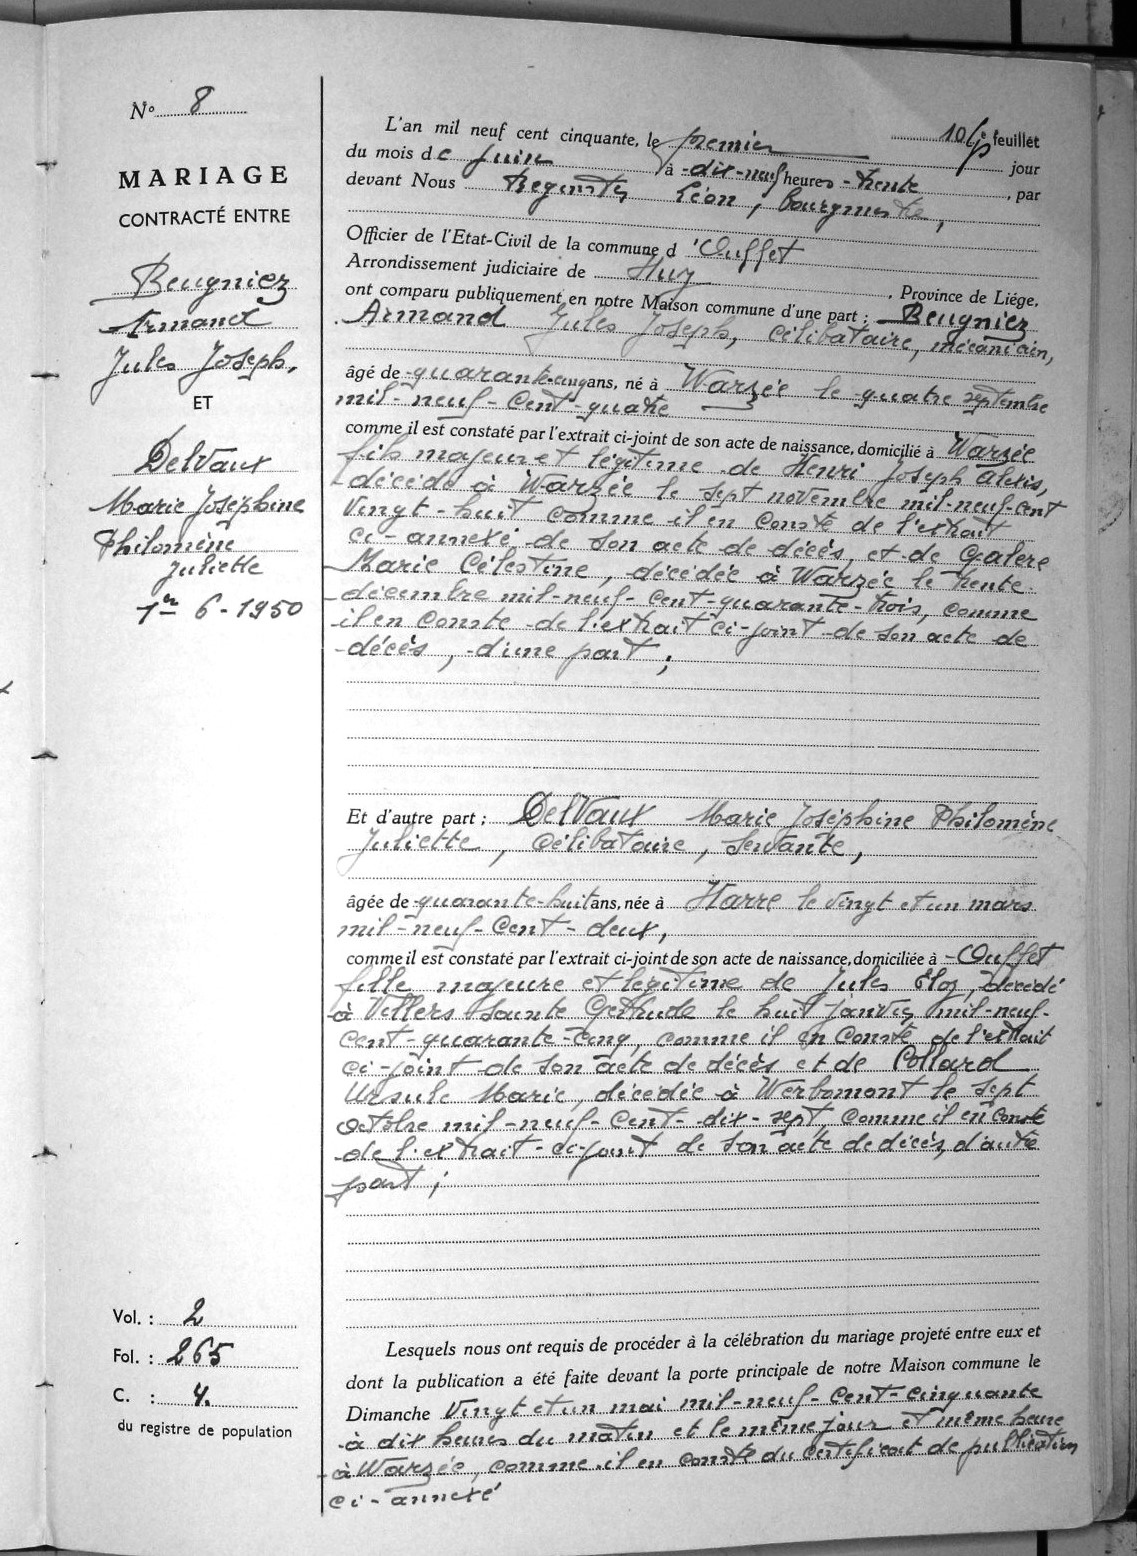 N° 8
MARIAGE
CONTRACTÉ ENTRE
Beugniez
Armand
Jules Joseph,
ET
Delvaux
Marie Joséphine
Philomène
Juliette
1er 6-1950
Vol. : 2
Fol. : 265
C. : 4.
du registre de population
feuillet
L'an mil neuf cent cinquante, le premier jour
du mois de Juin à dix-neuf heures trente, par
devant Nous Léon, bourgmestre,
Officier de l'Etat-Civil de la commune d'Ouffet
Arrondissement judiciaire de Huy, Province de Liége,
ont comparu publiquement en notre Maison commune d'une part : Beugniez
Armand Jules Joseph, célibataire, mécanicien,
âgé de quarante-cinq ans, né à Warzée le quatre septembre
mil-neuf-cent-quatre
comme il est constaté par l'extrait ci-joint de son acte de naissance, domicilié à Warzée
fils majeur et légitime de Henri Joseph Alexis,
décédé à Warzée le sept novembre mil-neuf-cent
vingt-huit comme il en conste de l'extrait
ci-annexé de son acte de décès, et de Galere
Marie Célestine, décédée à Warzée le trente
décembre mil-neuf-cent-quarante-trois, comme
il en conste de l'extrait ci-joint de son acte de
décès, d'une part ;
Et d'autre part : Delvaux Marie Joséphine Philomène
Juliette, célibataire, servante,
âgée de quarante-huit ans, née à Harre le vingt et un mars
mil-neuf-cent-deux,
comme il est constaté par l'extrait ci-joint de son acte de naissance, domiciliée à Ouffet
fille majeure et légitime de Jules Eloy, décédé
à Villers Sainte Gertrude le huit janvier mil-neuf-
cent-quarante-cinq, comme il en conste de l'extrait
ci-joint de son acte de décès et de Collard
Ursule Marie, décédée à Werbomont le sept
octobre mil-neuf-cent-dix-sept, comme il en conste
de l'extrait-ci-joint de son acte de décès, d'autre
part ;
Lesquels nous ont requis de procéder à la célébration du mariage projeté entre eux et
dont la publication a été faite devant la porte principale de notre Maison commune le
Dimanche vingt et un mai mil-neuf-cent-cinquante
à dix heures du matin et le même jour et même heure
à Warzée, comme il en conste du certificat de publication
ci-annexé